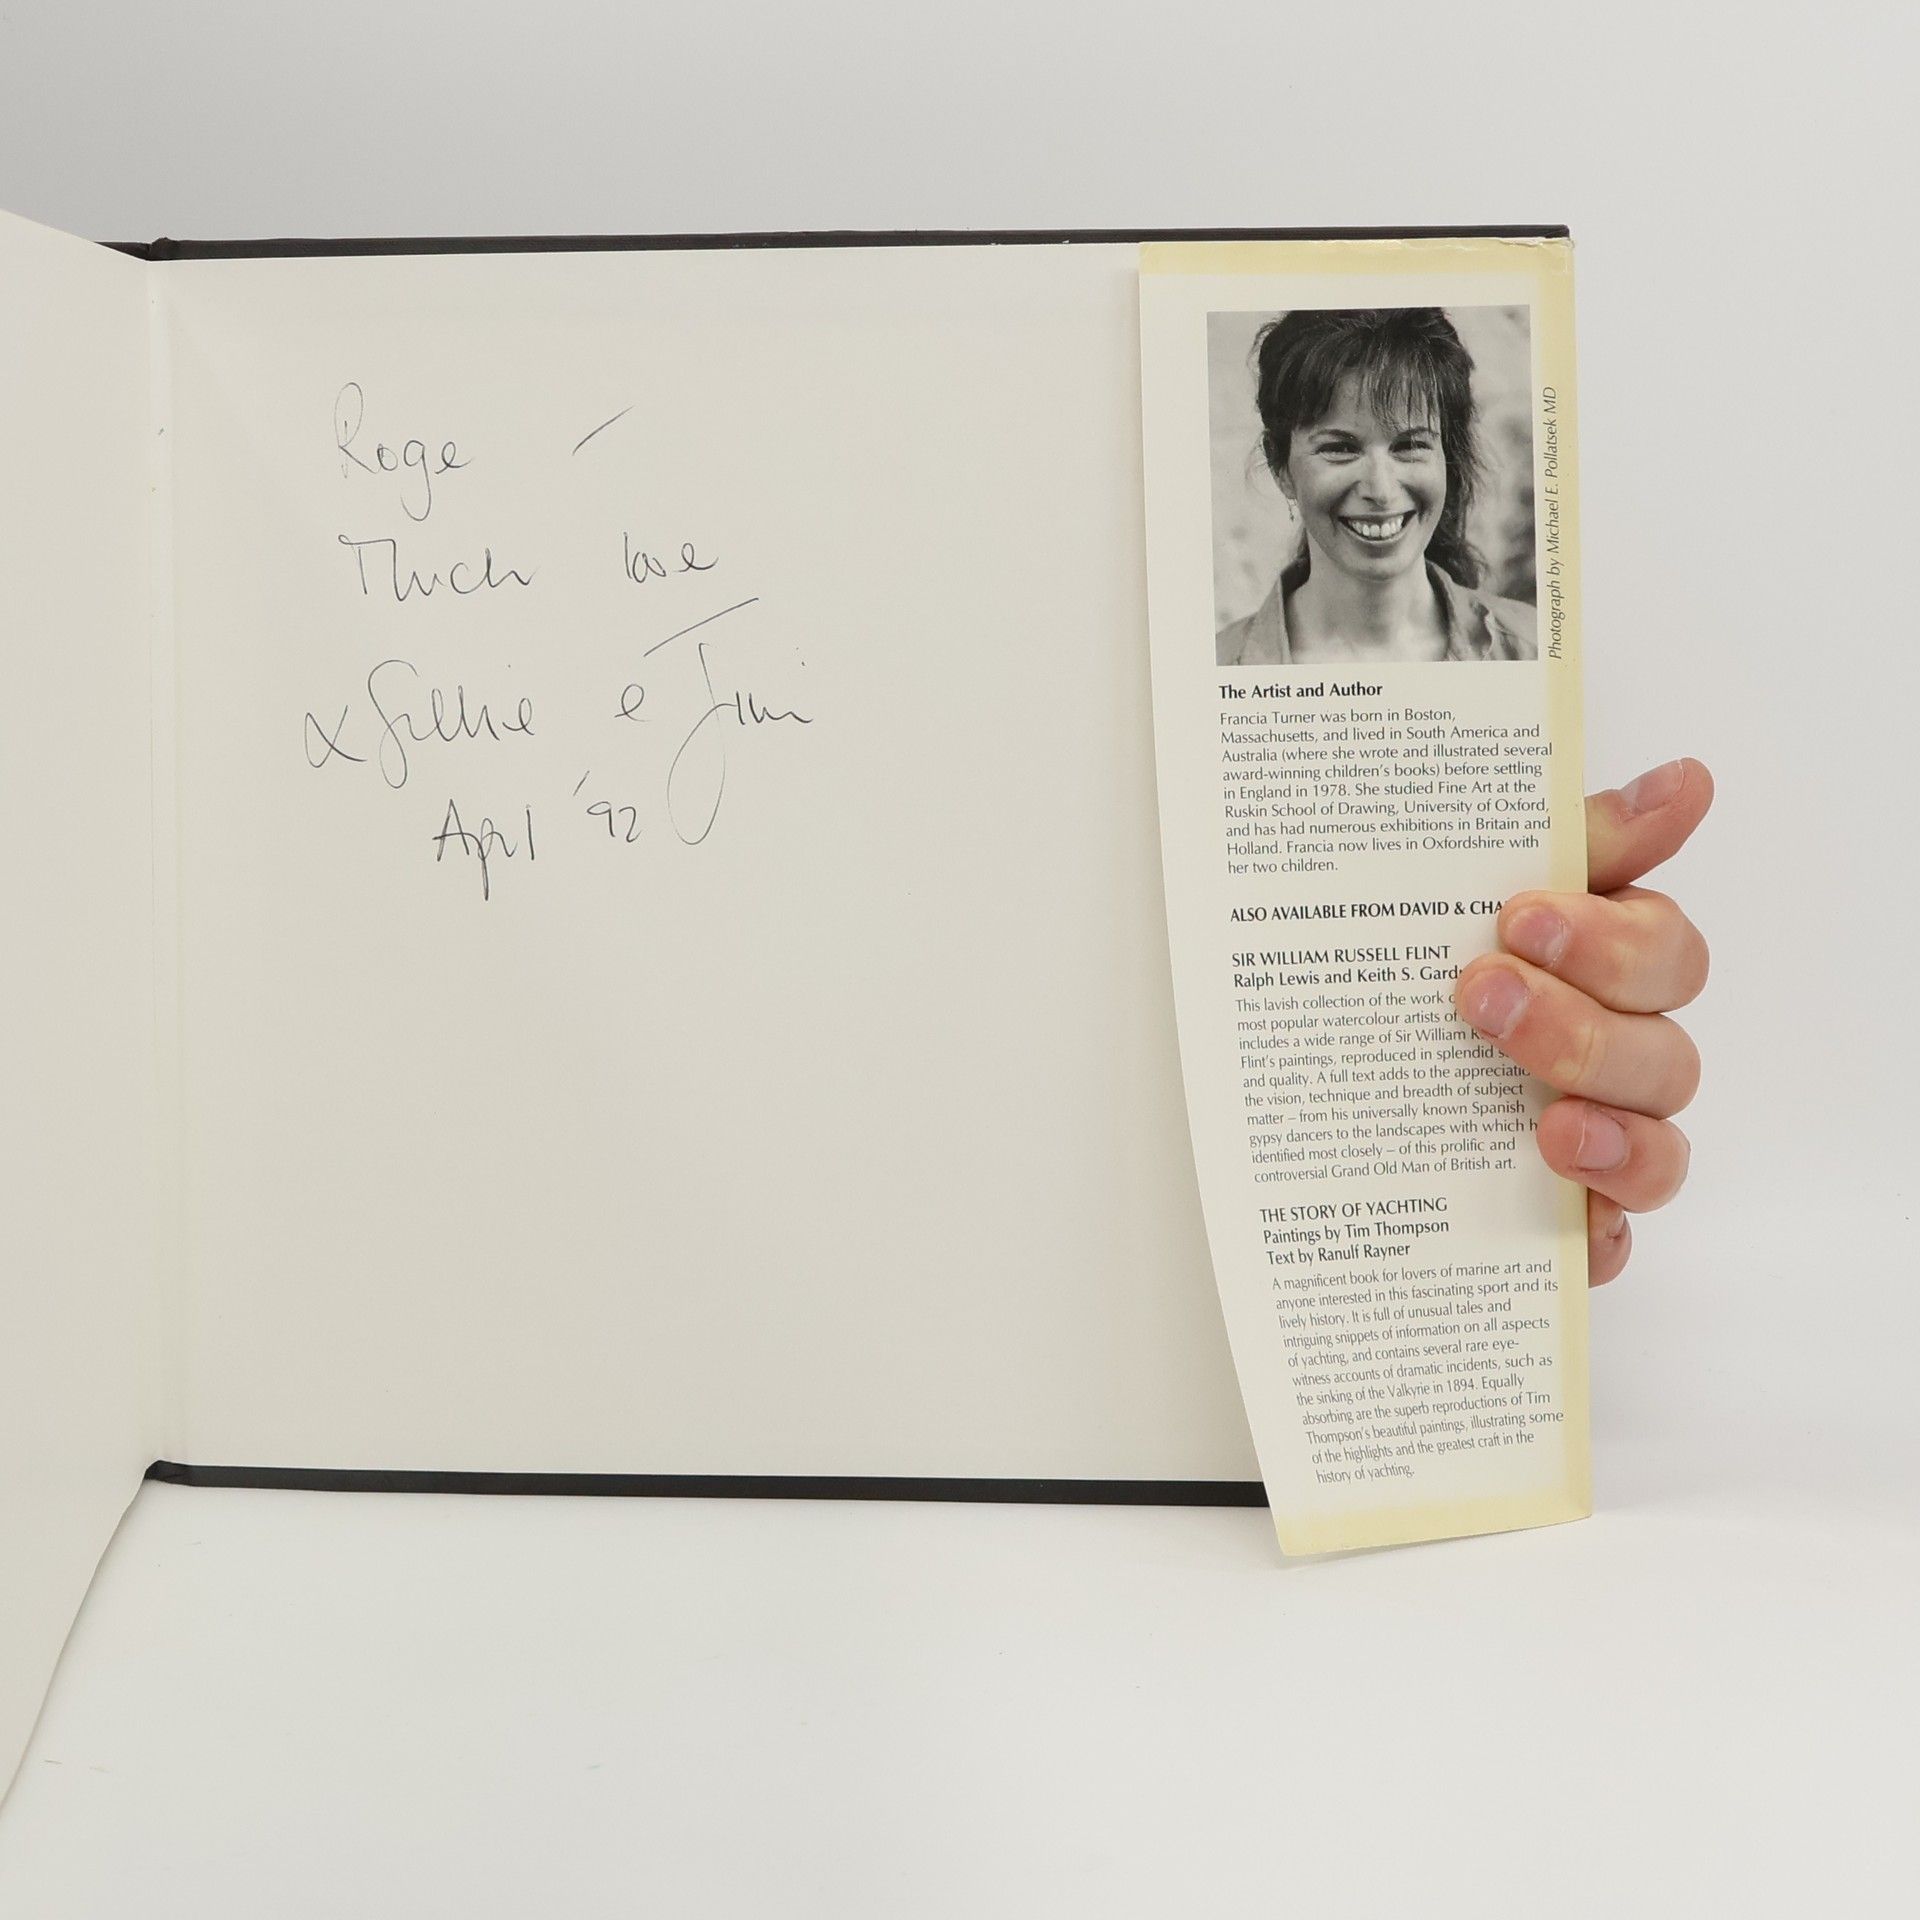 Roge —
Much love
x Gillie e Jim
April '92
Photograph by Michael E. Pollatsek MD
The Artist and Author
Francia Turner was born in Boston,
Massachusetts, and lived in South America and
Australia (where she wrote and illustrated several
award-winning children's books) before settling
in England in 1978. She studied Fine Art at the
Ruskin School of Drawing, University of Oxford,
and has had numerous exhibitions in Britain and
Holland. Francia now lives in Oxfordshire with
her two children.
ALSO AVAILABLE FROM DAVID & CHA
SIR WILLIAM RUSSELL FLINT
Ralph Lewis and Keith S. Gard
This lavish collection of the work
most popular watercolour artists of
includes a wide range of Sir William R
Flint's paintings, reproduced in splendid s
and quality. A full text adds to the appreciatio
the vision, technique and breadth of subject
matter – from his universally known Spanish
gypsy dancers to the landscapes with which h
identified most closely – of this prolific and
controversial Grand Old Man of British art.
THE STORY OF YACHTING
Paintings by Tim Thompson
Text by Ranulf Rayner
A magnificent book for lovers of marine art and
anyone interested in this fascinating sport and its
lively history. It is full of unusual tales and
intriguing snippets of information on all aspects
of yachting, and contains several rare eye-
witness accounts of dramatic incidents, such as
the sinking of the Valkyrie in 1894. Equally
absorbing are the superb reproductions of Tim
Thompson's beautiful paintings, illustrating some
of the highlights and the greatest craft in the
history of yachting.